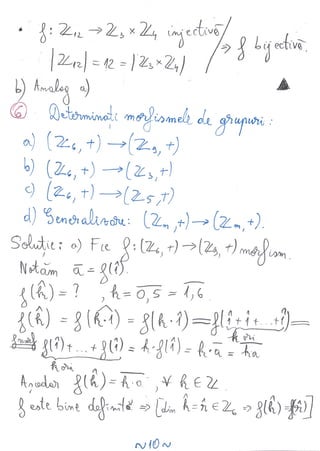 • f: ℤ₁₂ → ℤ₃ × ℤ₄ injectivă / ⇒ f bijectivă.
|ℤ₁₂| = 12 = |ℤ₃ × ℤ₄|
b) Analog a) ▲
⑥ Determinați morfismele de grupuri:
a) (ℤ₆, +) → (ℤ₉, +)
b) (ℤ₆, +) → (ℤ₃, +)
c) (ℤ₆, +) → (ℤ₅, +)
d) Generalizare: (ℤₘ, +) → (ℤₙ, +).
Soluție: a) Fie f: (ℤ₆, +) → (ℤ₉, +) morfism.
Notăm ā = f(1̂).
f(k̂) = ? , k = 0,5 = 1,6
f(k̂) = f(k·1̂) = f(k·1) = f(1̂+1̂+...+1̂) =
k ori
f morf f(1̂)+...+f(1̂) = k·f(1̂) = k·ā = ka
k ori
Așadar f(k̂) = k·a , ∀ k ∈ ℤ
f este bine definită ⇒ [din k̂ = r̂ ∈ ℤ₆ ⇒ f(k̂) = f(r̂)]
~10~